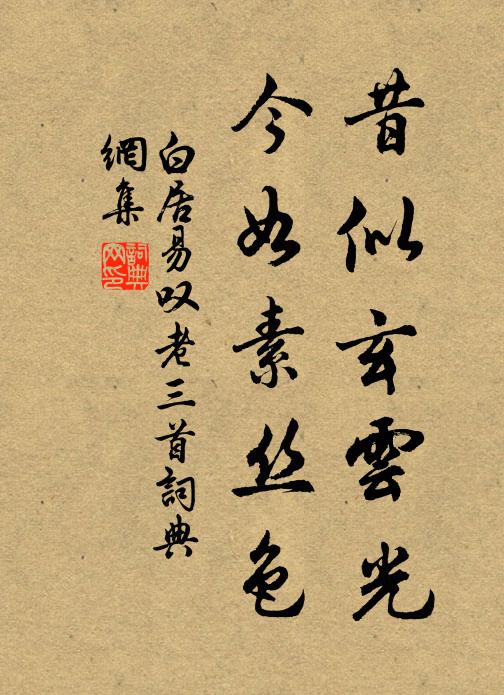 昔似玄雲光
今如素丝色
白居易叹老三首詞典
網集
詞典
网印